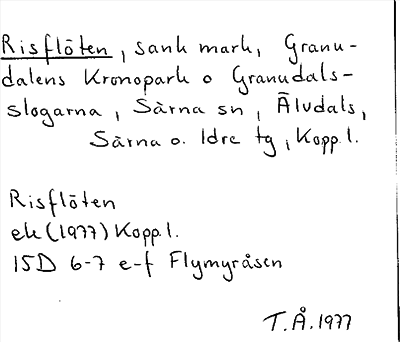 Risflöten, sank mark, Granu-
dalens Kronopark o Granudals-
slogarna, Särna sn, Älvdals,
Särna o. Idre tg, Kopp.l.
Risflöten
ek (1977) Kopp.l.
15D 6-7 e-f Flymyråsen
T.Å. 1977